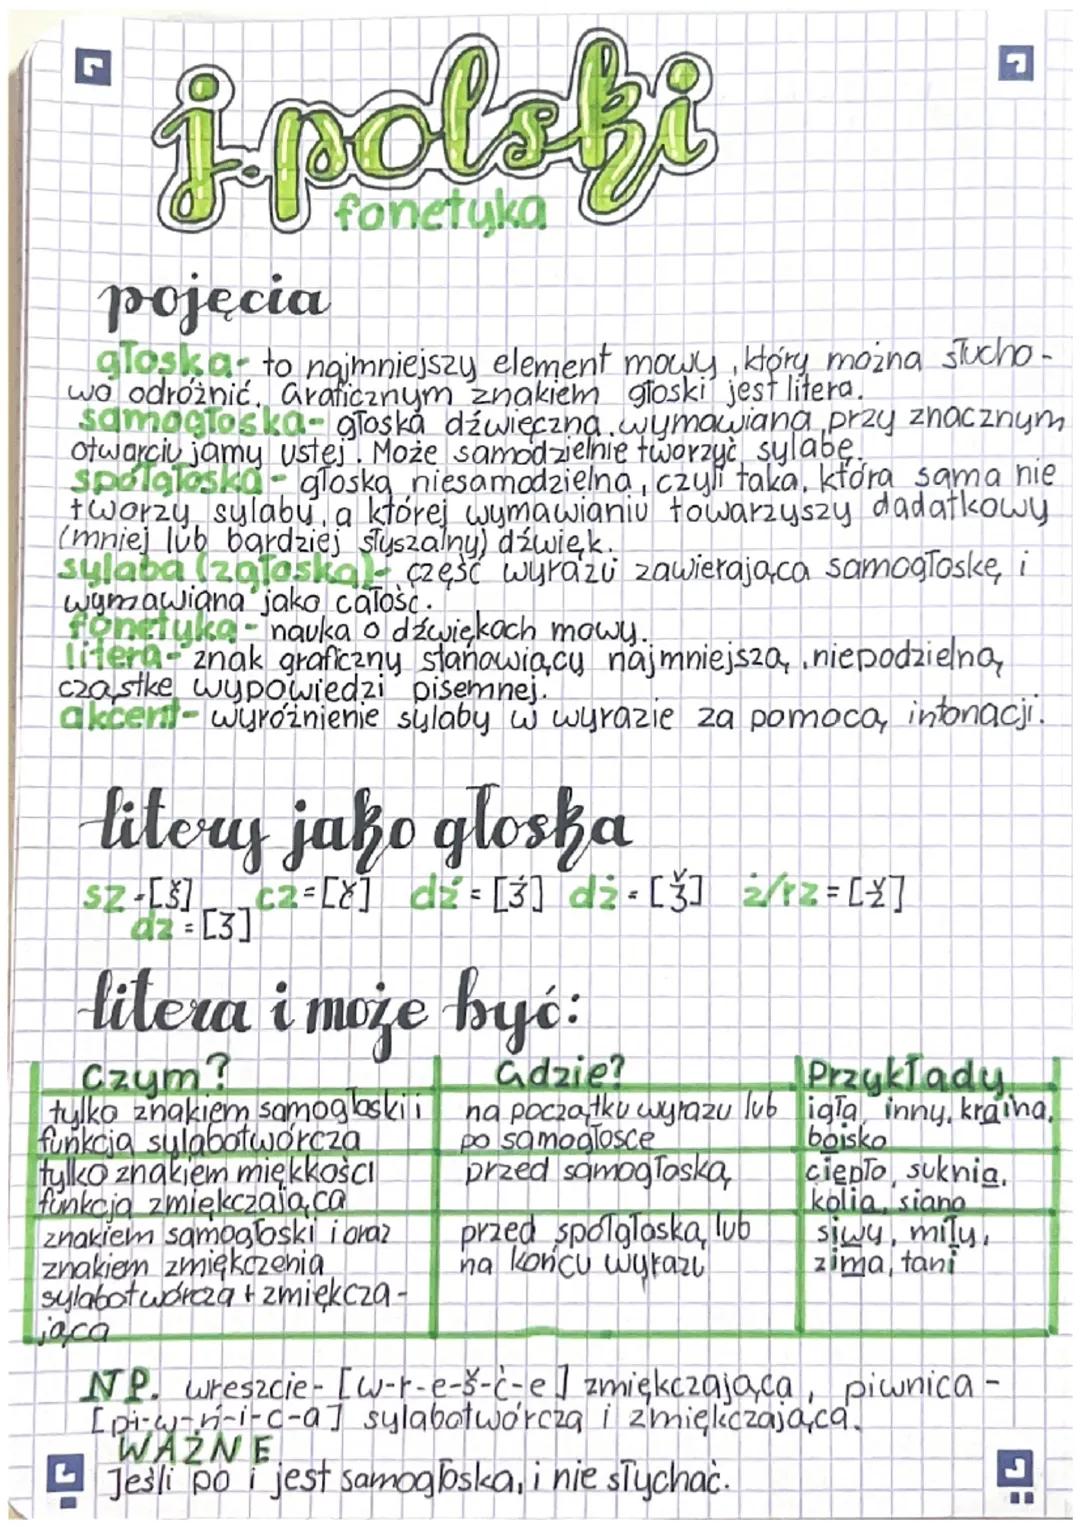 j. polski
fonetyka
pojęcia
głoska- to najmniejszy element mowy, który można słucho-
wo odróżnić. Graficznym znakiem głoski jest litera.
samogłoska- głoska dźwięczna, wymawiana przy znacznym
otwarciu jamy ustej. Może samodzielnie tworzyć sylabę.
spółgłoska- głoska niesamodzielna, czyli taka, która sama nie
tworzy sylaby, a której wymawianiu towarzyszy dadatkowy
(mniej lub bardziej słyszalny) dźwięk.
sylaba (zgłoska)- część wyrazu zawierająca samogłoskę i
wymawiana jako całość.
fonetyka- nauka o dźwiękach mowy.
litera- znak graficzny stanowiący najmniejszą, niepodzielną,
cząstkę wypowiedzi pisemnej.
akcent- wyróżnienie sylaby w wyrazie za pomocą intonacji.
litery jako głoska
sz=[š] cz=[č] dź=[ʒ́] dż=[ǯ] ż/rz=[ž]
dz=[ʒ]
litera i może być:
Czym? Gdzie? Przykłady
tylko znakiem samogłoski i na początku wyrazu lub igła, inny, kraina,
funkcja sylabotwórcza po samogłosce boisko
tylko znakiem miękkości przed samogłoską ciepło, suknia,
funkcja zmiękczająca kolia, siano
znakiem samogłoski i oraz przed spółgłoską lub siwy, miły,
znakiem zmiękczenia na końcu wyrazu zima, tani
sylabotwórcza + zmiękcza-
jąca
NP. wreszcie- [w-r-e-š-ć-e] zmiękczająca, piwnica-
[pi-w-ń-i-c-a] sylabotwórcza i zmiękczająca.
WAŻNE
Jeśli po i jest samogłoska, i nie słychać.